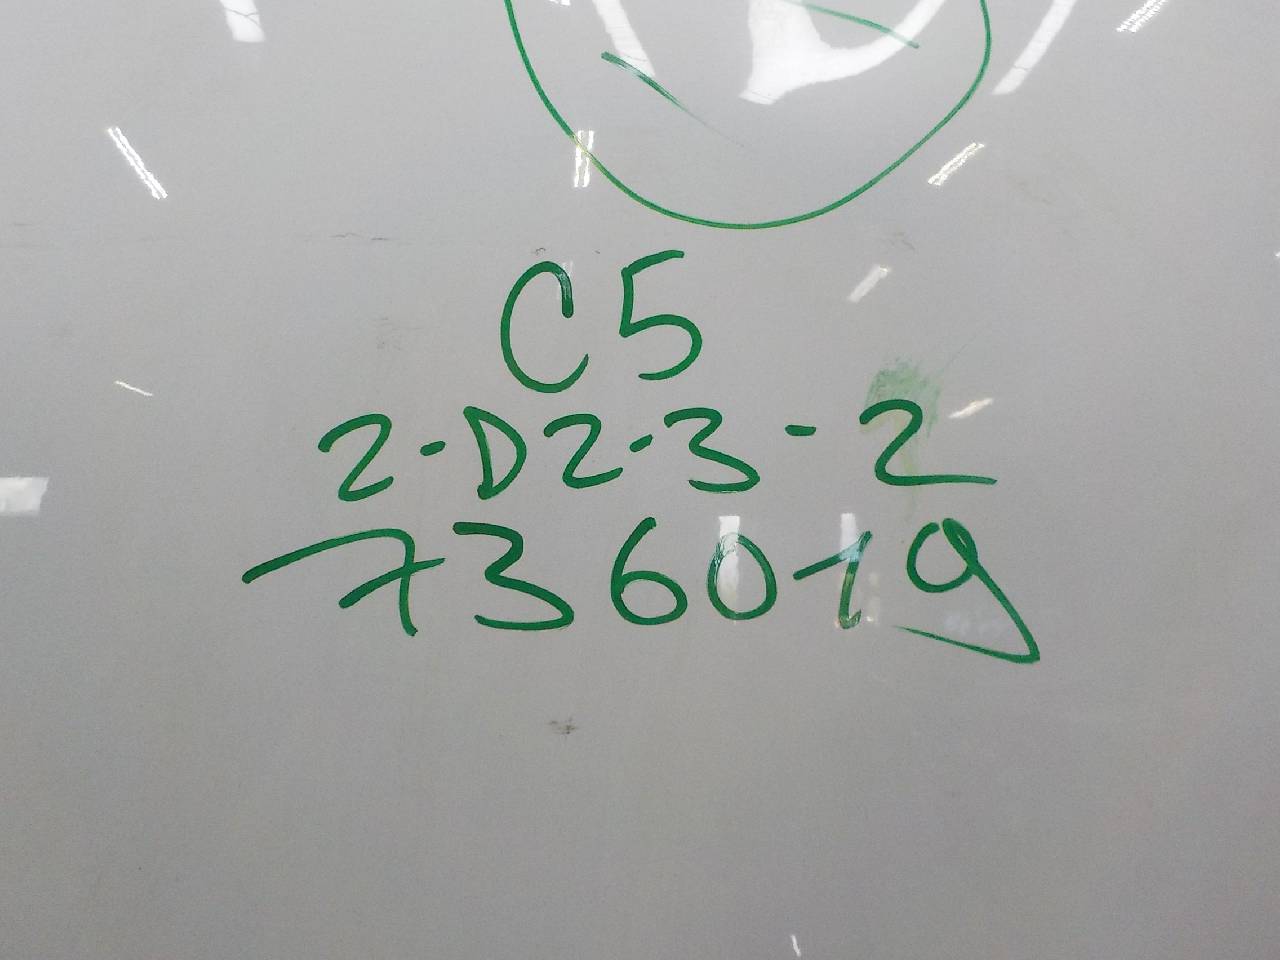 C5
2-D2-3-2
736019